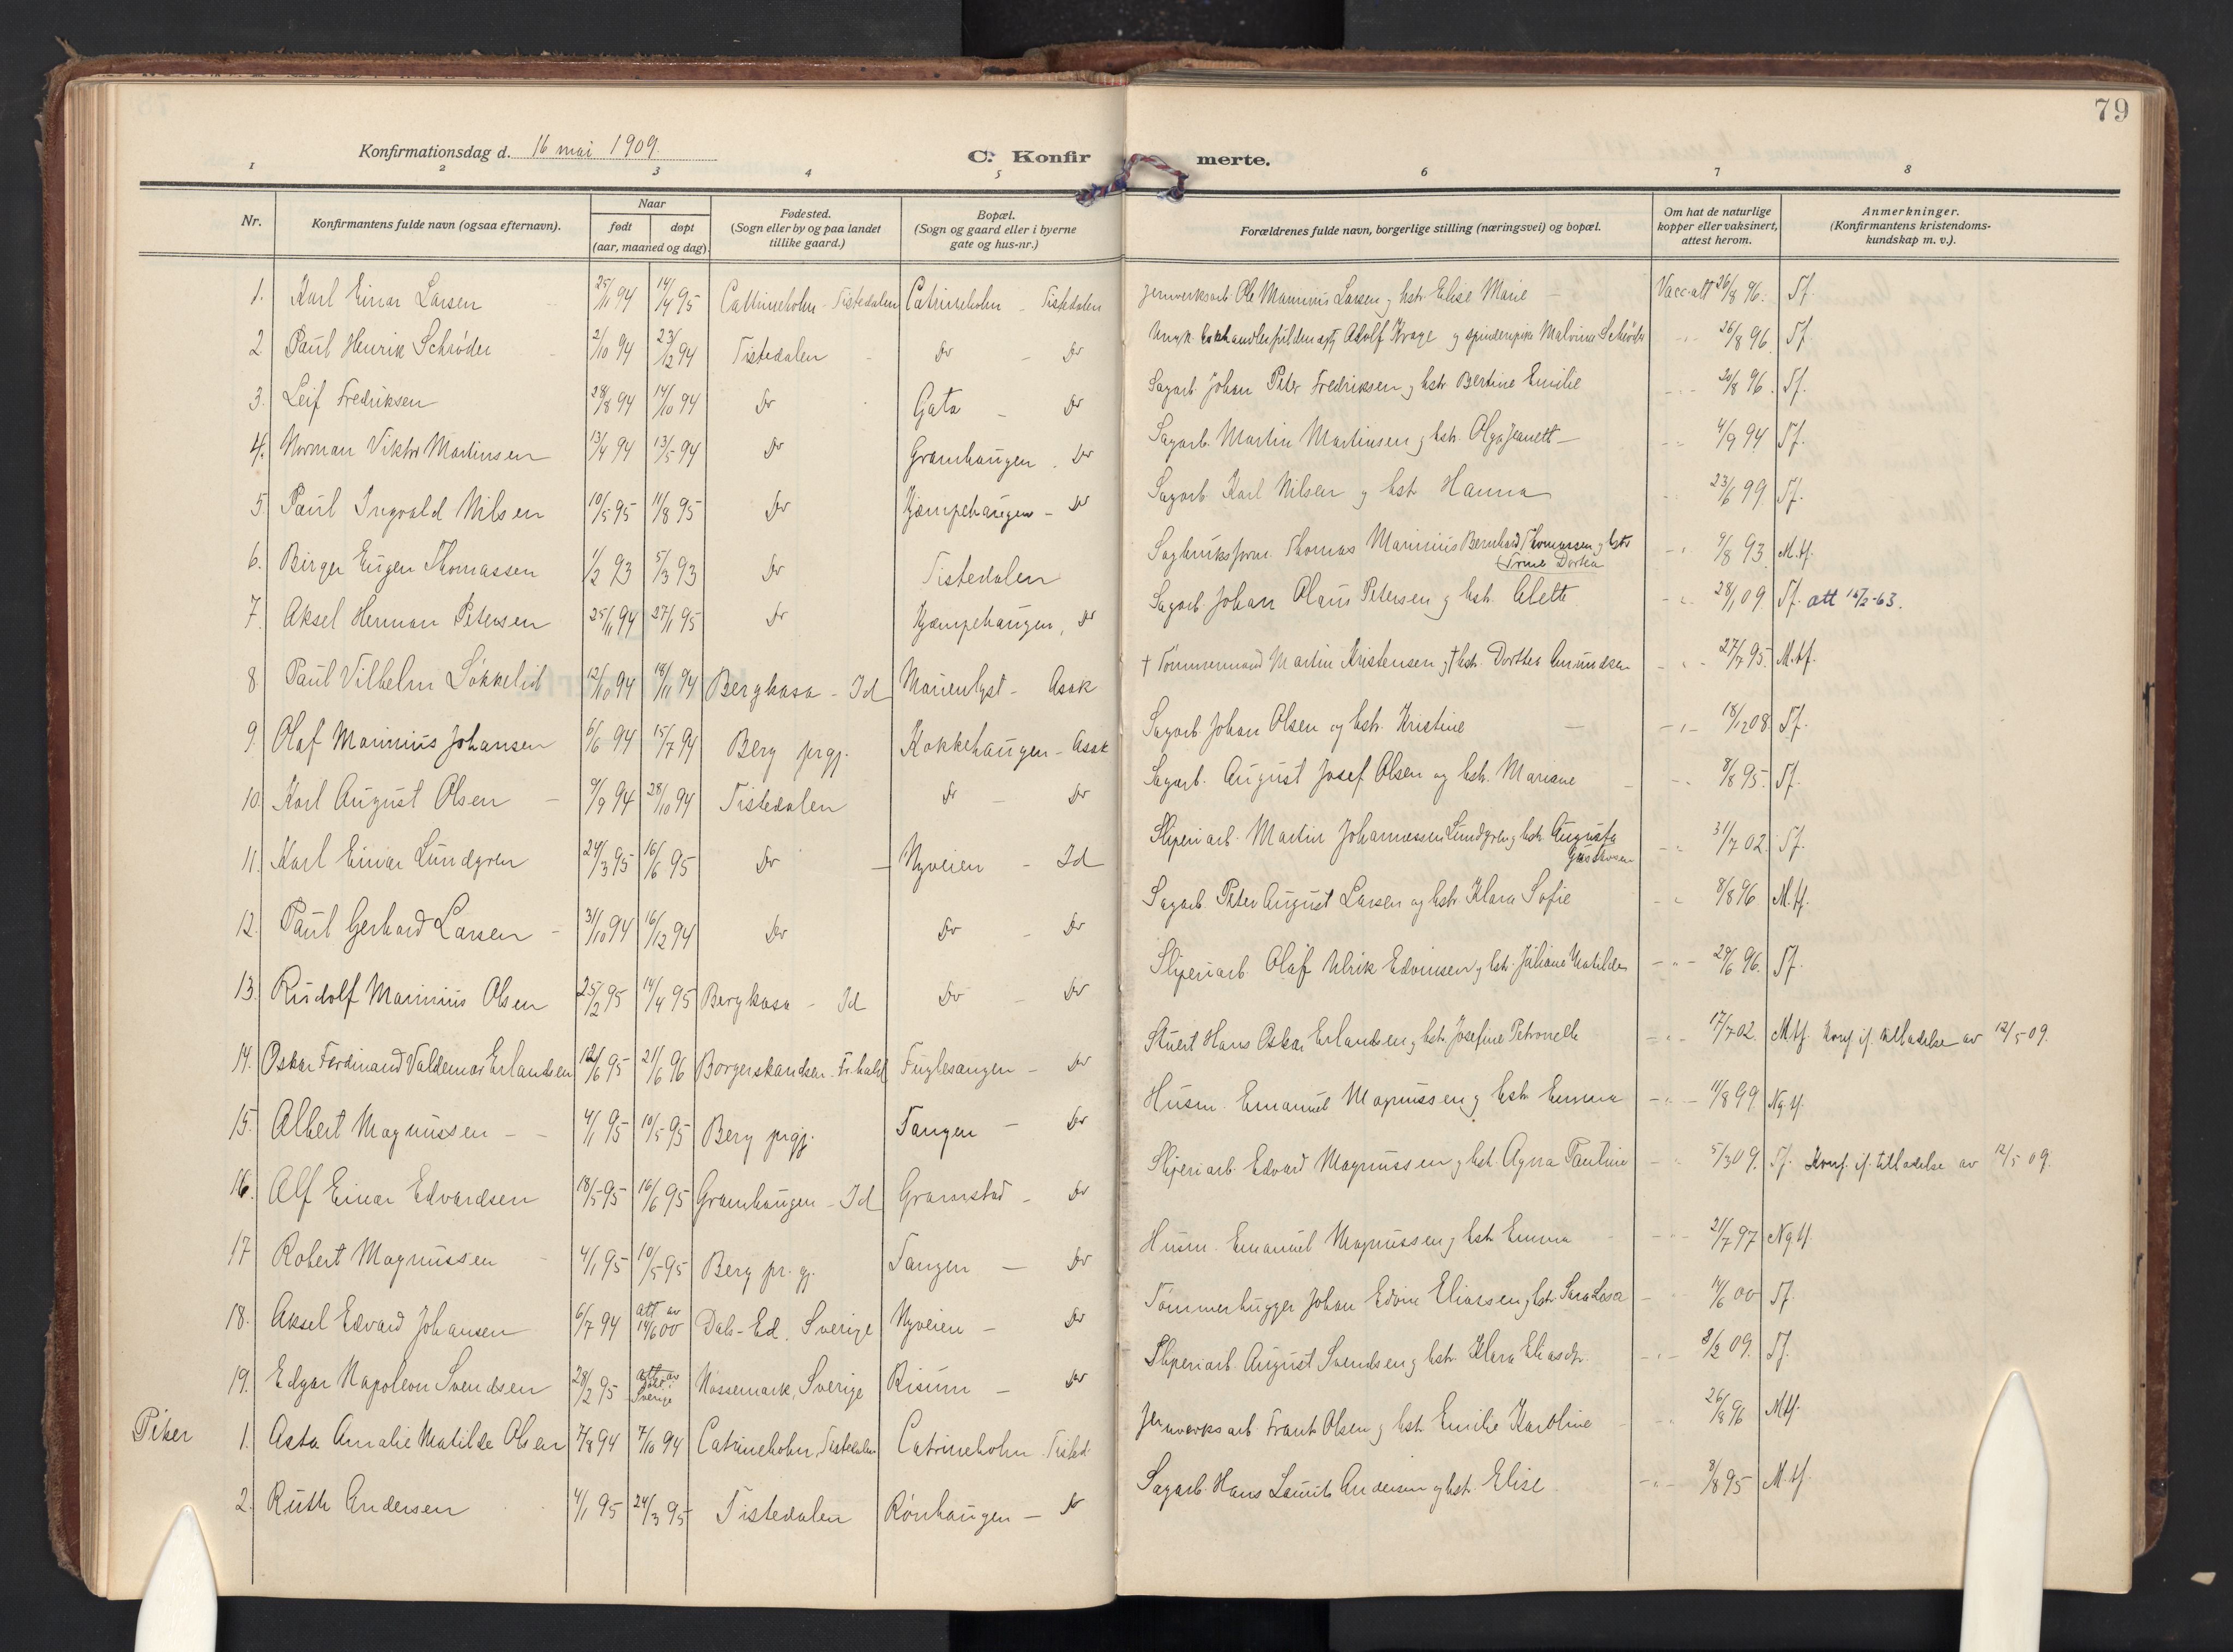 79
Konfirmationsdag d. 16 mai 1909.
C. Konfirmerte.
1 2 3 4 5 6 7 8
Nr. Konfirmantens fulde navn (ogsaa efternavn). Naar født døpt (aar, maaned og dag) Fødested. (Sogn eller by og paa landet tillike gaard.) Bopæl. (Sogn og gaard eller i byerne gate og hus-nr.) Forældrenes fulde navn, borgerlige stilling (næringsvei) og bopæl. Om hat de naturlige kopper eller vaksinert, attest herom. Anmerkninger. (Konfirmantens kristendoms-kundskap m. v.).
1. Karl Einar Larsen 25/11 94 14/4 95 Catrineholm - Tistedalen Catrineholm - Tistedalen Jernverksarb. Ole Marinius Larsen og hstr. Elise Marie Vacc-att 26/8 96. Tf.
2 Paul Henrik Schrøder 2/10 94 23/12 94 Tistedalen Do - Do Adolf Krage og spinderipike Malvina Schrøder 26/8 96 Tf
3. Leif Fredriksen 28/8 94 14/10 94 Do Gata - Do Sagarb. Johan Peter Fredriksen og hstr Bertine Emilie 26/8 96. Tf.
4. Norman Viktor Martinsen 13/4 94 13/5 94 Do Gramhaugen. Do Sagarb. Martin Martinsen og hstr. Olga Jeanett 4/9 94 Tf.
5 Paul Ingvald Nilsen 10/5 95 11/8 95 Do Kjæmpehaugen - Do Sagarb. Karl Nilsen og hstr Hanna 23/6 99 Tf.
6. Birger Eugen Thomassen 1/2 93 5/3 93 Do Tistedalen Sagbruksform. Thomas Marinius Bernhard Thomassen og hstr Trine Dortea 9/8 93 M.tf.
7. Aksel Herman Petersen 25/11 94 27/1 95 Do Kjæmpehaugen, Do Sagarb Johan Olaus Petersen og hstr. Alette 28/1 09 Tf. att 16/2-63.
8 Paul Vilhelm Løkkelid 12/10 94 18/11 94 Bergkasa - Id Marienlyst - Asak † Tømmermand Martin Kristensen og † hstr. Dorthea Amundsen 27/7 95. M.tf.
9. Olaf Marinius Johansen 6/6 94 15/7 94 Berg prgj. Kokkehaugen - Asak Sagarb. Johan Olsen og hstr. Kristine 18/12 08. Tf.
10. Karl August Olsen 9/9 94 28/10 94 Tistedalen Do - Do Sagarb. August Josef Olsen og hstr. Mariane 8/8 95. Tf.
11. Karl Einar Lundgren 24/3 95 16/6 95 Do - Nyveien - Id Sliperiarb. Martin Johannessen Lundgren og hstr. Augusta Gustavsen 31/7 02. Tf.
12. Paul Gerhard Larsen 31/10 94 16/12 94 Do Do - Do Sagarb. Peter August Larsen og hstr. Klara Sofie 8/8 96 M.tf.
13. Rudolf Marinius Olsen 25/2 95 14/4 95 Bergkasa - Id Do - Do Sliperiarb. Olaf Ulrik Edvinsen og hstr. Juliane Matilde 29/6 96. Tf.
14. Oskar Ferdinand Valdemar Erlandsen 12/6 95 21/6 96 Borgerskandsen - Fr.hald Fuglesangen - Do Stuert Hans Oskar Erlandsen og hstr. Josefine Petronelle 17/7 02. M.tf. Konf. if. tilladelse av 12/5 09.
15. Albert Magnussen 4/1 95 10/5 95 Berg prgj. Tangen - Do Husm. Emanuel Magnussen og hstr Emma 11/8 99 Ng.tf.
16. Alf Einar Edvardsen 18/5 95 16/6 95 Gramhaugen - Id Gramstad - Do Sliperiarb. Edvard Magnussen og hstr. Agna Pauline 5/3 09. Tf. Konf. if. tilladelse av 12/5 09.
17 Robert Magnussen 4/1 95 10/5 95 Berg pr.gj. Tangen - Do Husm. Emanuel Magnussen og hstr Emma 21/7 97 Ng tf
18. Aksel Edvard Johansen 6/7 94 att av 14/6 00 Dals-Ed. Sverige Nyveien - Do Tømmerhugger Johan Edvin Eliassen og hstr. Sara Lasa 14/6 00 Tf.
19. Edgar Napoleon Svendsen 28/2 95 att av Sverige Nossemark, Sverige Risum - Do Sliperiarb. August Svendsen og hstr. Klara Eliasdr. 8/2 09. Tf.
Piker 1. Asta Amalie Matilde Olsen 7/8 94 7/10 94 Catrineholm, Tistedalen Catrineholm Tisted. Jernverksarb. Frants Olsen og hstr Emilie Karoline 26/8 96 Mtf.
2. Ruth Andersen 4/1 95 24/3 95 Tistedalen Rønhaugen - Do Sagarb. Hans Laurits Andersen og hstr. Elise 8/8 95 M.tf